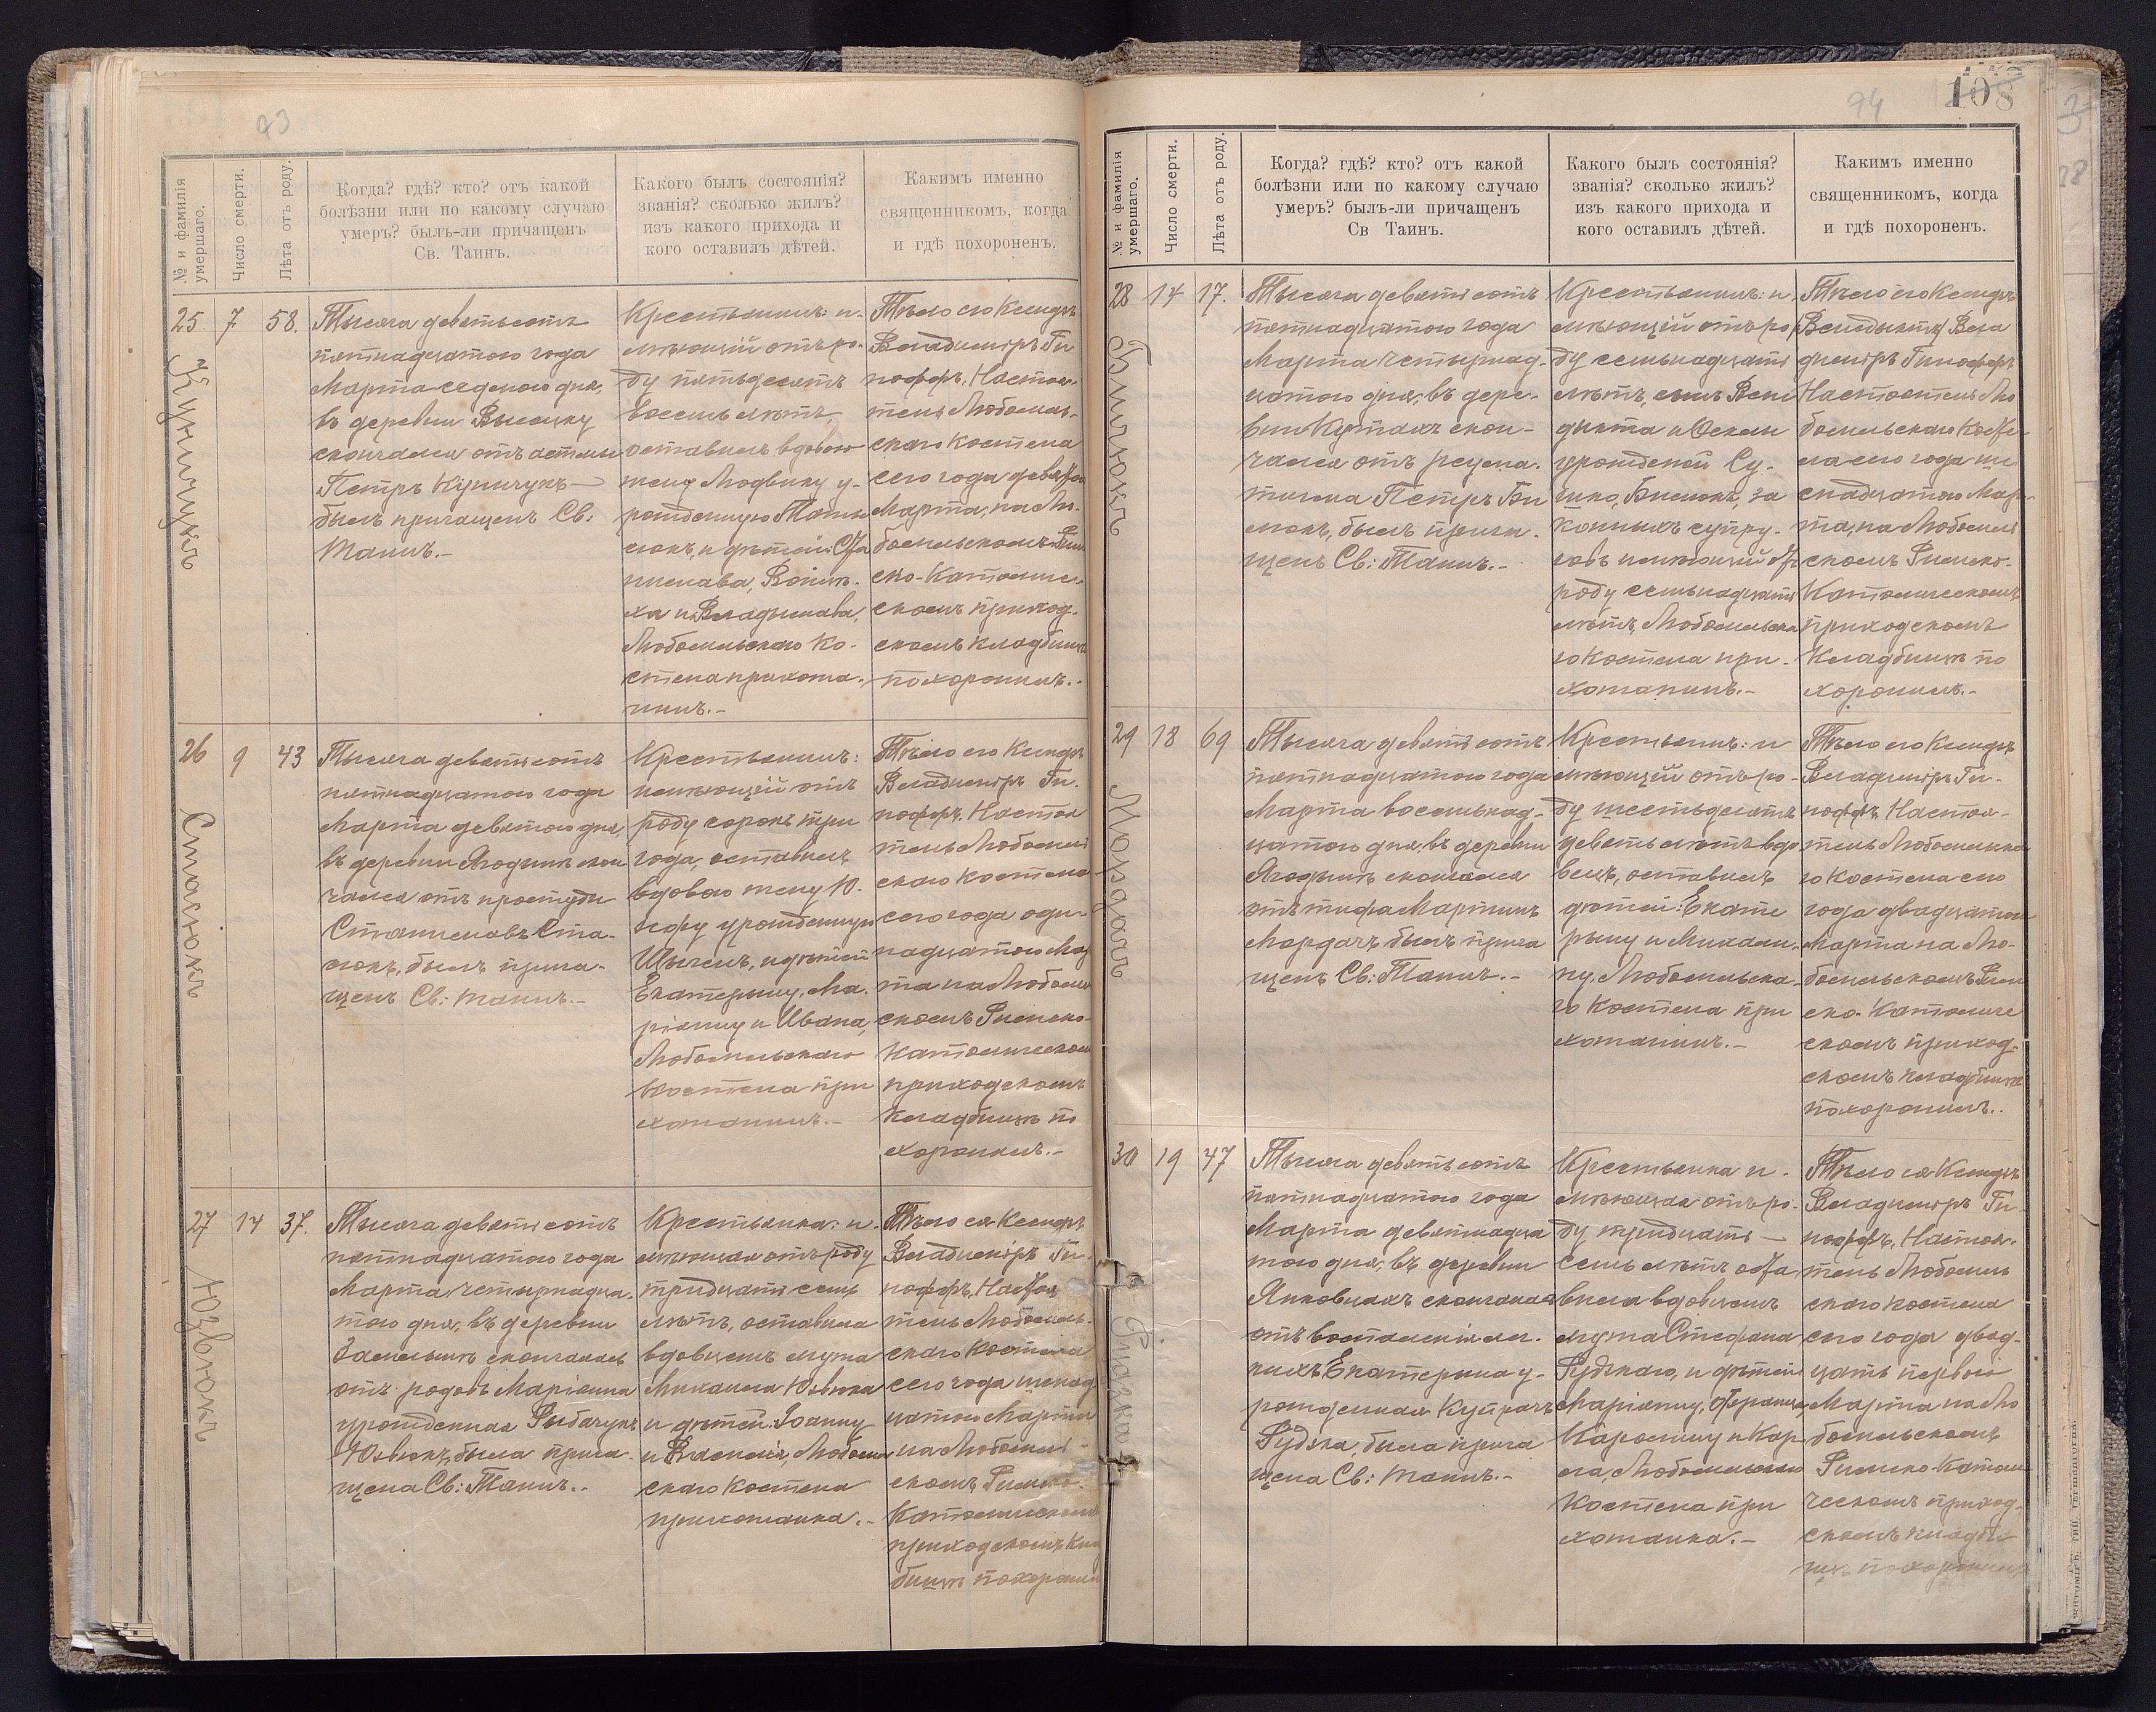 93
№ и фамилія умершаго.
Число смерти.
Лѣта отъ роду.
Когда? гдѣ? кто? отъ какой
болѣзни или по какому случаю
умеръ? былъ-ли причащенъ
Св. Таинъ.
Какого былъ состоянія?
званія? сколько жилъ?
изъ какого прихода и
кого оставилъ дѣтей.
Какимъ именно
священникомъ, когда
и гдѣ похороненъ.
25
Куничукъ
7
58.
Тысяча девятьсотъ
пятнадцатого года
Марта седьмого дня,
въ деревни Высоцку
скончался отъ астмы
Петръ Куничукъ —
былъ причащенъ Св:
Таинъ.–
Крестьянинъ: и-
мѣющій отъ ро-
ду пятьдесятъ
восемь лѣтъ,
оставилъ вдовою
жену Людвику у-
рожденную
сюкъ, и дѣтей: Ста
нислава, Войцѣ-
ха и Владислава,
Любомльскаго Ко-
стела прихожа-
нинъ.–
Тѣло его Ксендзъ
Владиміръ Ги
поффъ, Настоя-
тель Любомль-
скаго Костела
сего года девятого
Марта, на Лю-
бомльскомъ Рим
ско-Католиче
скомъ приход-
скомъ кладбищѣ
похоронилъ.–
26
Стасюкъ
9
43
Тысяча девятьсотъ
пятнадцатого года
Марта девятого дня,
въ деревни Ягодинѣ скон
чался отъ простуды
Станиславъ Ста-
сюкъ, былъ прича-
щенъ Св: Таинъ.–
Крестьянинъ:
имѣющій отъ
роду сорокъ три
года, оставилъ
вдовою жену Ю-
зефу урожденную
и дѣтей
Екатерину, Ма-
ріанну и Ивана,
Любомльскаго
Костела при
хожанинъ.–
Тѣло его Ксендзъ
Владиміръ Ги-
поффъ, Настоя
тель Любомль
скаго Костела
сего года оди-
надцатого Мар
та на Любомль
скомъ Римско-
Католическомъ
приходскомъ
Кладбищѣ по
хоронилъ.–
27
Юзвюкъ
14
37.
Тысяча девятьсотъ
пятнадцатого года
Марта четырнадца-
того дня, въ деревни
скончалась
отъ родовъ Маріанна
урожденная Рыбачукъ
Юзвюкъ, была прича-
щена Св: Таинъ.–
Крестьянка: и-
мѣющая отъ роду
тридцать семь
лѣтъ, оставила
вдовцемъ мужа
Михаила Юзвюка
и дѣтей: Іоанну
и Любомль
скаго Костела
прихожанка.–
Тѣло ея Ксендзъ
Владиміръ Ги-
поффъ, Настоя
тель Любомль-
скаго Костела
сего года шеснад
цатого Марта
на Любомль-
скомъ Римско-
Католическомъ
приходскомъ Клад
бищѣ похоронилъ
94
108
№ и фамилія умершаго.
Число смерти.
Лѣта отъ роду.
Когда? гдѣ? кто? отъ какой
болѣзни или по какому случаю
умеръ? былъ-ли причащенъ
Св Таинъ.
Какого былъ состоянія?
званія? сколько жилъ?
изъ какого прихода и
кого оставилъ дѣтей.
Какимъ именно
священникомъ, когда
и гдѣ похороненъ.
28
Бимюкъ
14
17.
Тысяча девятьсотъ
пятнадцатого года
Марта четырнад-
цатого дня, въ дере-
вни Кутахъ скон-
чался отъ ревма-
тизма Петръ Би
мюкъ, былъ прича-
щенъ Св: Таинъ.–
Крестьянинъ: и
мѣющій отъ ро
ду семьнадцать
лѣтъ, сынъ Вене
дикта и Феклы
урожденой Су-
Бимюкъ, за
конныхъ супру-
говъ имѣющій отъ
роду семьнадцать
лѣтъ, Любомльска
го Костела при-
хожанинъ.–
Тѣло его Ксендзъ
Влади
диміръ Гипоффъ
Настоятель Лю
бомльскаго Косте-
ла сего года ше
снадцатого Мар-
та, на Любомль
скомъ Римско-
Католическомъ
приходскомъ
Кладбищѣ по
хоронилъ.–
29
Мордачъ
18
69
Тысяча девятьсотъ
пятнадцатого года
Марта восемьнад-
цатого дня, въ деревни
Ягодинѣ скончался
отъ тифа Мартинъ
Мордачъ былъ прича
щенъ Св: Таинъ.–
Крестьянинъ: и
мѣющій отъ ро-
ду шестьдесятъ
девять лѣтъ вдо
вецъ, оставилъ
дѣтей: Екате
рыну и Михали-
ну, Любомльска-
го Костела при
хожанинъ.–
Тѣло его Ксендзъ
Владиміръ Ги-
поффъ, Настоя-
тель Любомльска
го Костела сего
года двадцатого
Марта на Лю-
бомльскомъ Рим
ско-Католиче
скомъ приход-
скомъ кладбищѣ
похоронилъ..
30
Рудзка
19
47
Тысяча девятьсотъ
пятнадцатого года
Марта девятнадца
того дня, въ деревни
Янковцахъ скончалась
отъ воспаленія лег-
кихъ Екатерина у-
рожденная
Рудзка, была прича
щена Св: Таинъ.–
Крестьянка и-
мѣющая отъ ро-
ду тридцать —
семь лѣтъ оста
вила вдовцемъ
мужа Стефана
Рудзкаго, и дѣтей
Маріанну, Франца,
Каролину и Кар
ла, Любомльскаго
Костела при
хожанка.–
Тѣло ея Ксендзъ
Владиміръ Ги-
поффъ, Настоя-
тель Любомль
скаго Костела
сего года двад-
цать первого
Марта на Лю
бомльскомъ
Римско-Католи
ческомъ приход-
скомъ кладби
щѣ похоронилъ